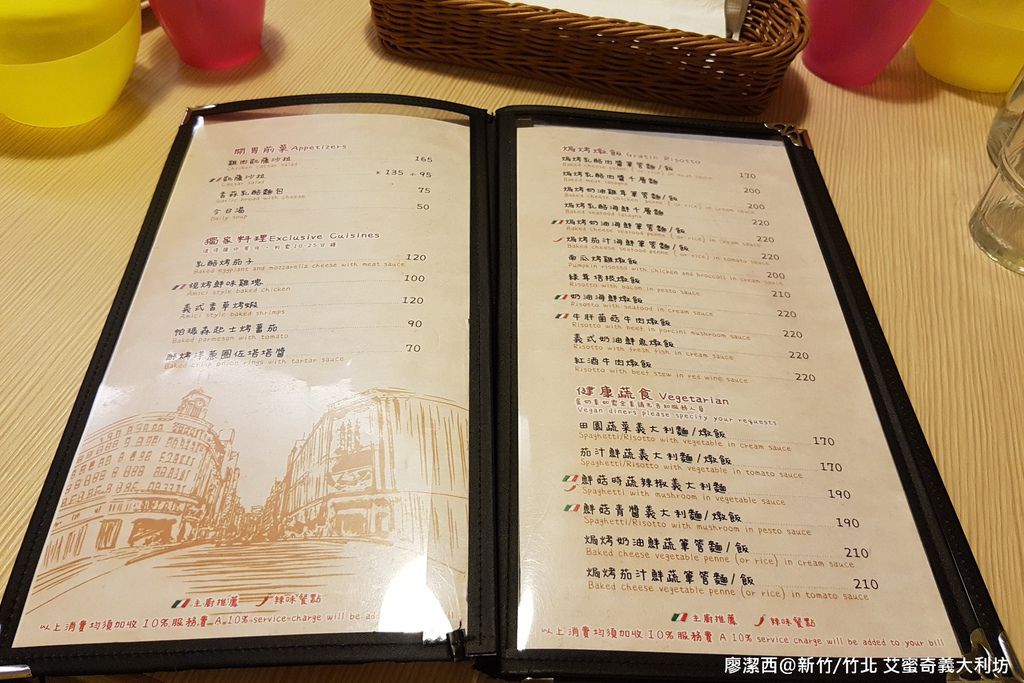 開胃前菜 Appetizers
雞肉凱薩沙拉 165
Chicken caesar salad
凱薩沙拉 135 95
Caesar salad
香蒜乳酪麵包 75
Garlic bread with cheese
今日湯 50
Daily soup
獨家料理 Exclusive Cuisines
乳酪烤茄子 120
Baked eggplant and mozzarella cheese with meat sauce
慢烤鮮味雞塊 100
Amici style baked chicken
義式香草烤蝦 120
Amici style baked shrimps
帕瑪森起士烤蕃茄 90
Baked parmesan with tomato
酥烤洋蔥圈佐塔塔醬 70
Baked crisp onion rings with tartar sauce
主廚推薦 辣味餐點
以上消費均須加收10%服務費 A 10% service charge will be added
焗烤燉飯 Gratin Risotto
焗烤乳酪肉醬筆管麵/飯 170
焗烤乳酪肉醬千層麵 200
Baked meat lasagna
焗烤奶油雞茸筆管麵/飯 200
Baked cheese chicken penne (or rice) in cream sauce
焗烤乳酪海鮮千層麵 220
Baked seafood lasagna
焗烤奶油海鮮筆管麵/飯 220
Baked cheese seafood penne (or rice) in cream sauce
焗烤茄汁海鮮筆管麵/飯 220
Baked cheese seafood penne (or rice) in tomato sauce
南瓜烤雞燉飯 200
Pumpkin risotto with chicken and broccoli in cream sauce
培根燉飯 210
Risotto with bacon in pesto sauce
奶油海鮮燉飯 220
Risotto with seafood in cream sauce
牛肝菌菇牛肉燉飯 220
Risotto with beef in porcini mushroom sauce
義式奶油鮮魚燉飯 220
Risotto with fresh fish in cream sauce
紅酒牛肉燉飯 220
Risotto with beef stew in red wine sauce
健康蔬食 Vegetarian
Vegan diners please specify your requests
田園蔬菜義大利麵/燉飯 170
Spaghetti/Risotto with vegetable in cream sauce
茄汁鮮蔬義大利麵/燉飯 170
Spaghetti/Risotto with vegetable in tomato sauce
鮮菇時蔬辣椒義大利麵 190
Spaghetti with mushroom in vegetable sauce
鮮菇青醬義大利麵/燉飯 190
Spaghetti/Risotto with mushroom in pesto sauce
焗烤奶油鮮蔬筆管麵/飯 210
Baked cheese vegetable penne (or rice) in cream sauce
焗烤茄汁鮮蔬筆管麵/飯 210
Baked cheese vegetable penne (or rice) in tomato sauce
主廚推薦 辣味餐點
以上消費均須加收10%服務費 A 10% service charge will be added to your bill
廖潔西@新竹/竹北 艾蜜奇義大利坊